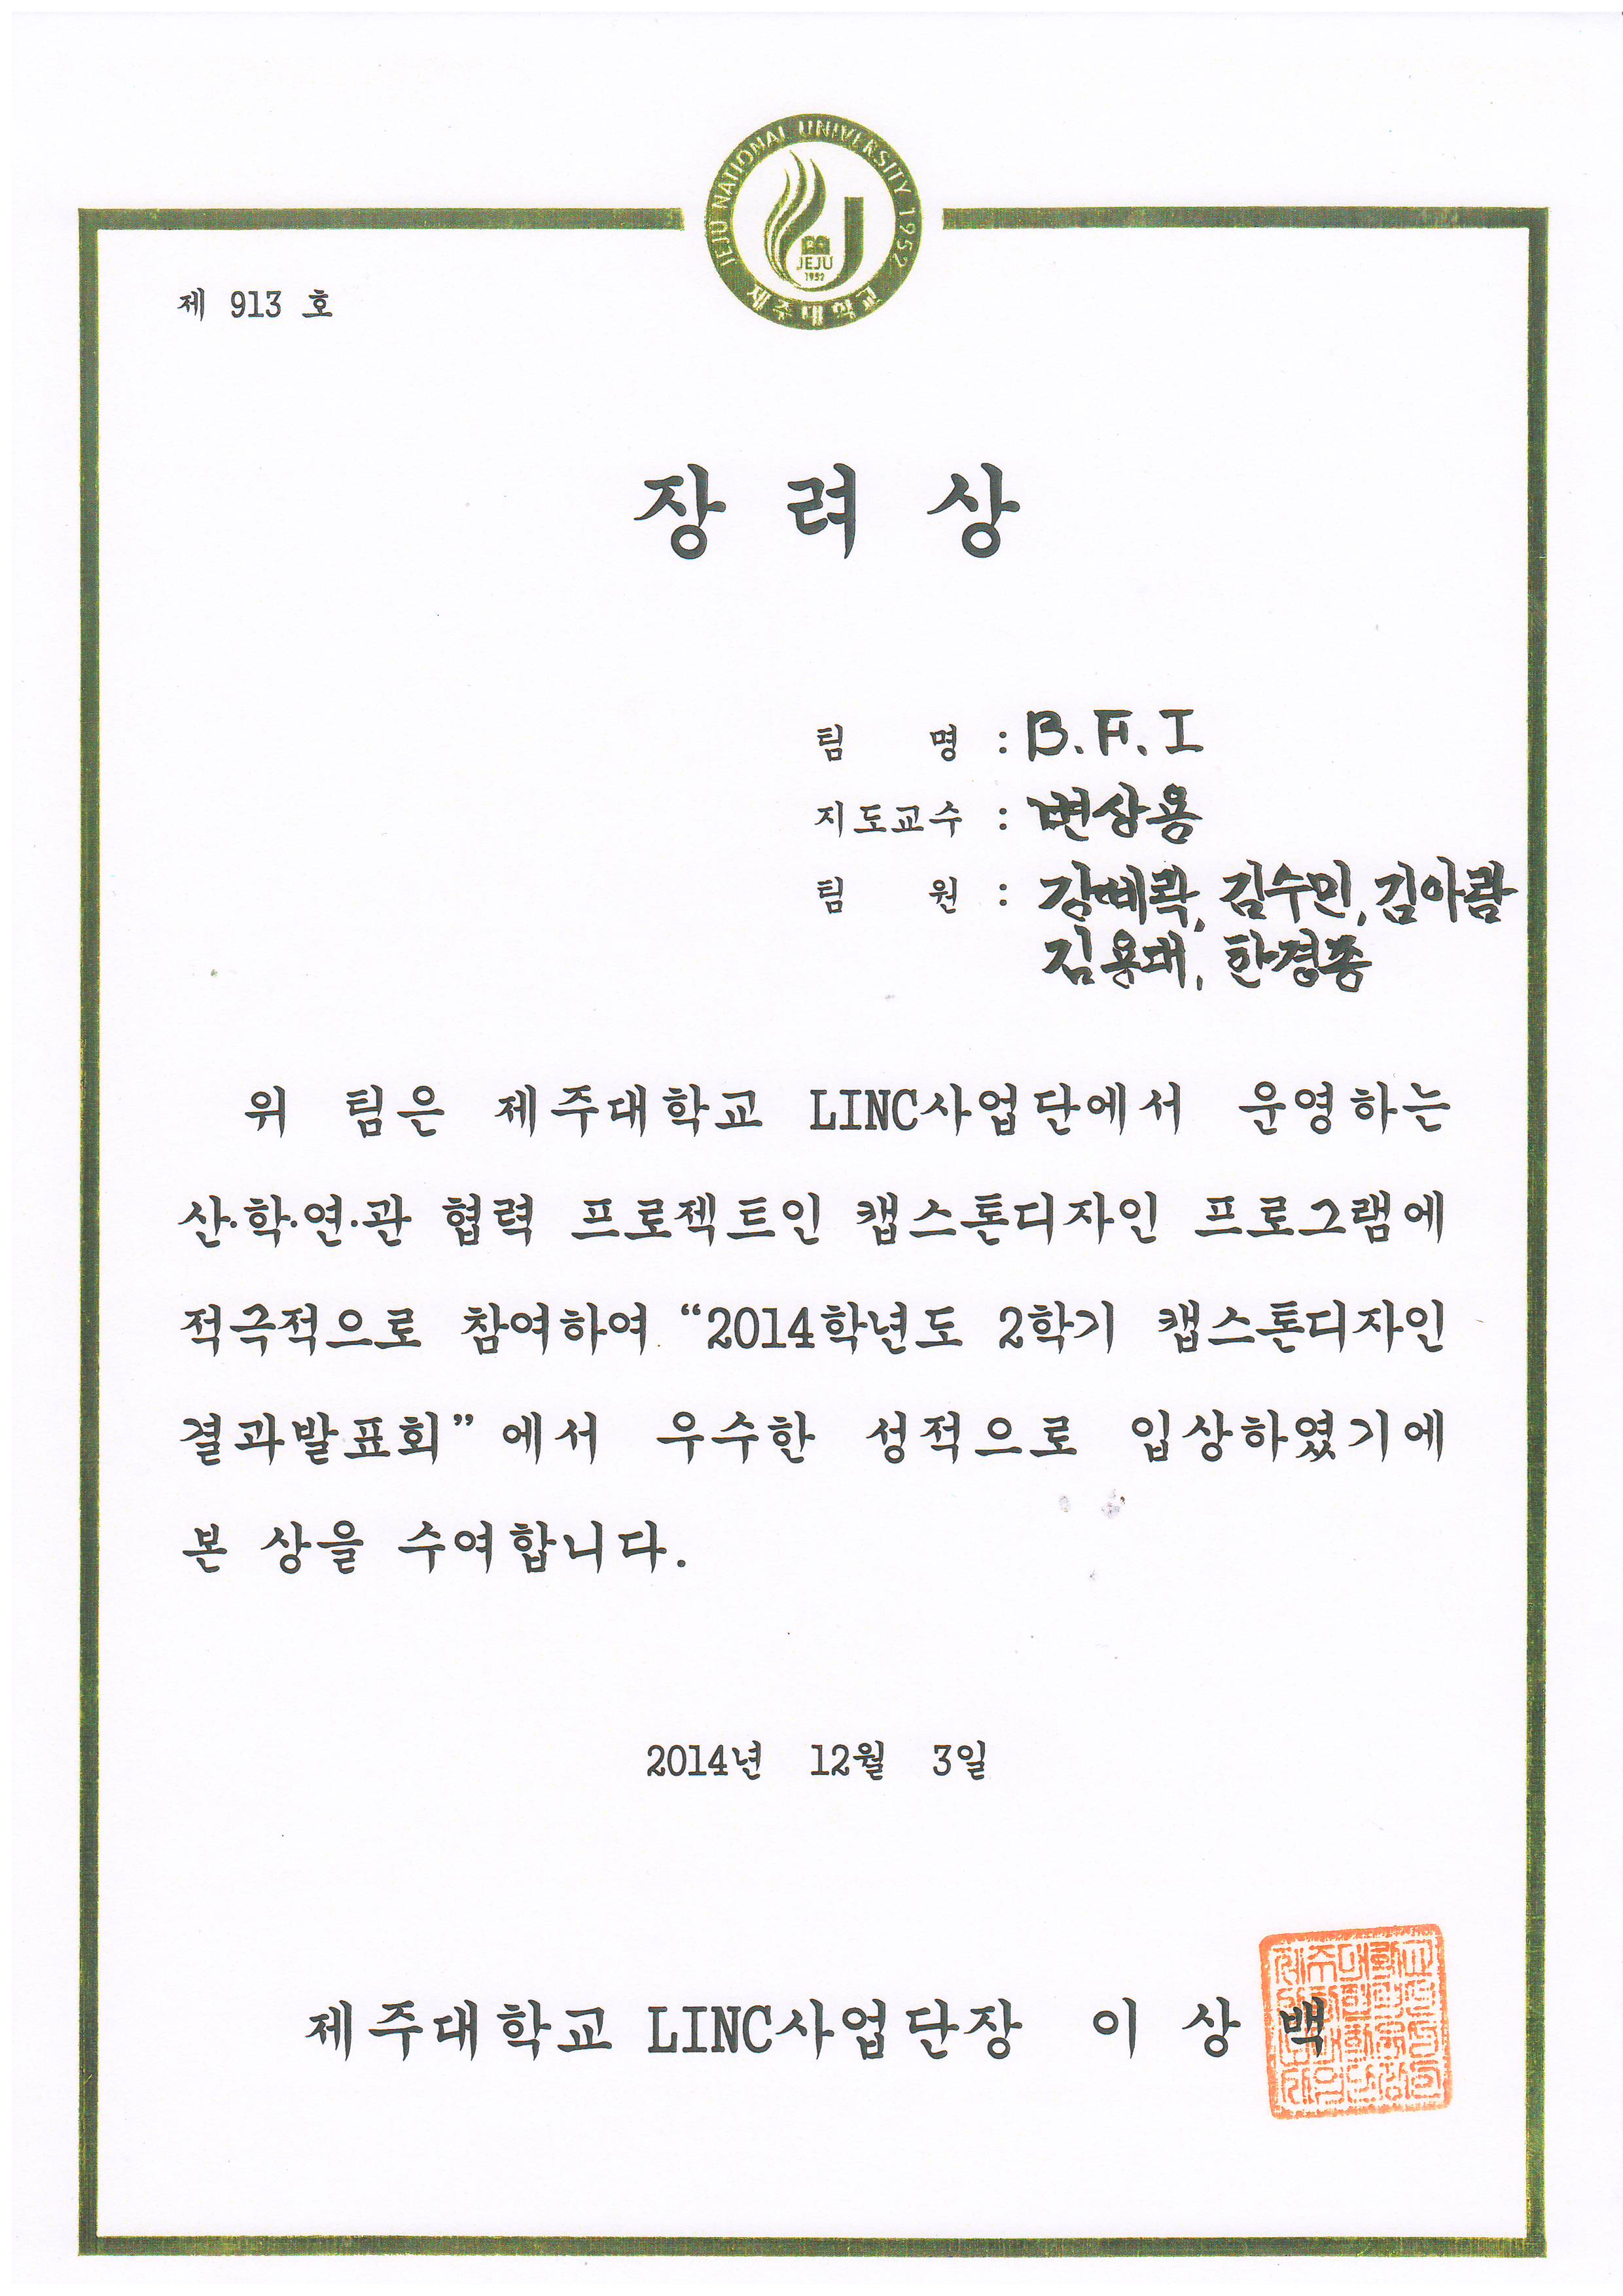 JEJU NATIONAL UNIVERSITY 1952
JEJU
1952
제주대학교
제 913 호
장 려 상
팀 명 : B.F.I
지도교수 : 변상용
팀 원 : 강벼락, 김수민, 김아람
김용대, 한경종
위 팀은 제주대학교 LINC사업단에서 운영하는
산·학·연·관 협력 프로젝트인 캡스톤디자인 프로그램에
적극적으로 참여하여 “2014학년도 2학기 캡스톤디자인
결과발표회” 에서 우수한 성적으로 입상하였기에
본 상을 수여합니다.
2014년 12월 3일
제주대학교 LINC사업단장 이 상 백